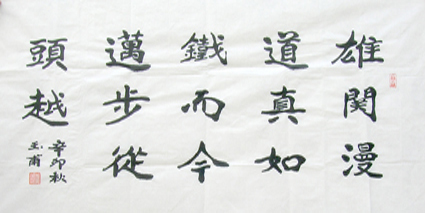 雄関漫
道真如
鐵而今
邁步從
頭越
辛卯秋
玉甫